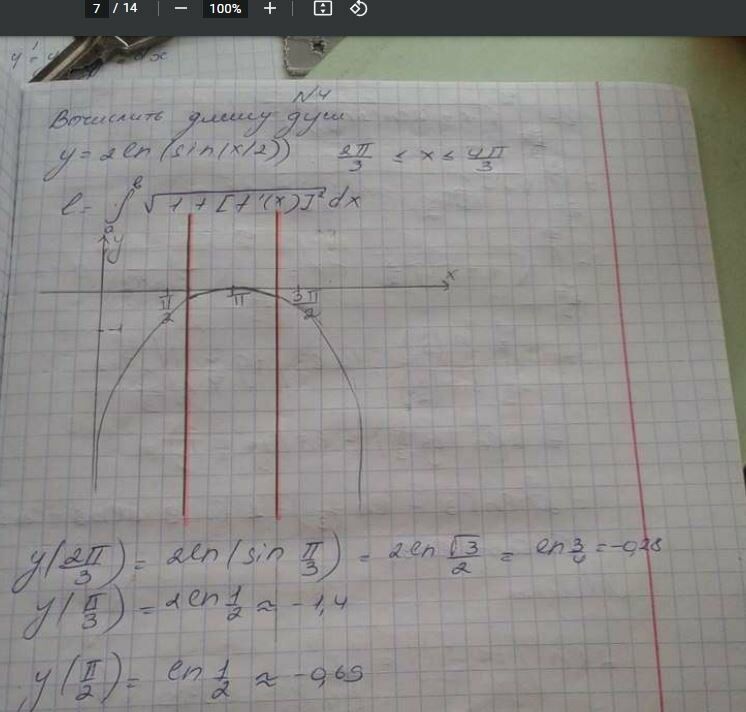 7 / 14 — 100% +
N4
Вочислить длину дуги
y = 2 ln (sin(x/2)) 2π/3 ≤ x ≤ 4π/3
l = ∫ₐᵇ √(1 + [f'(x)]²) dx
y
x
π/2 π 3π/2
-1
y(2π/3) = 2ln(sin π/3) = 2ln √3/2 = ln 3/4 = -0,28
y(π/3) = 2ln 1/2 ≈ -1,4
y(π/2) = ln 1/2 ≈ -0,69